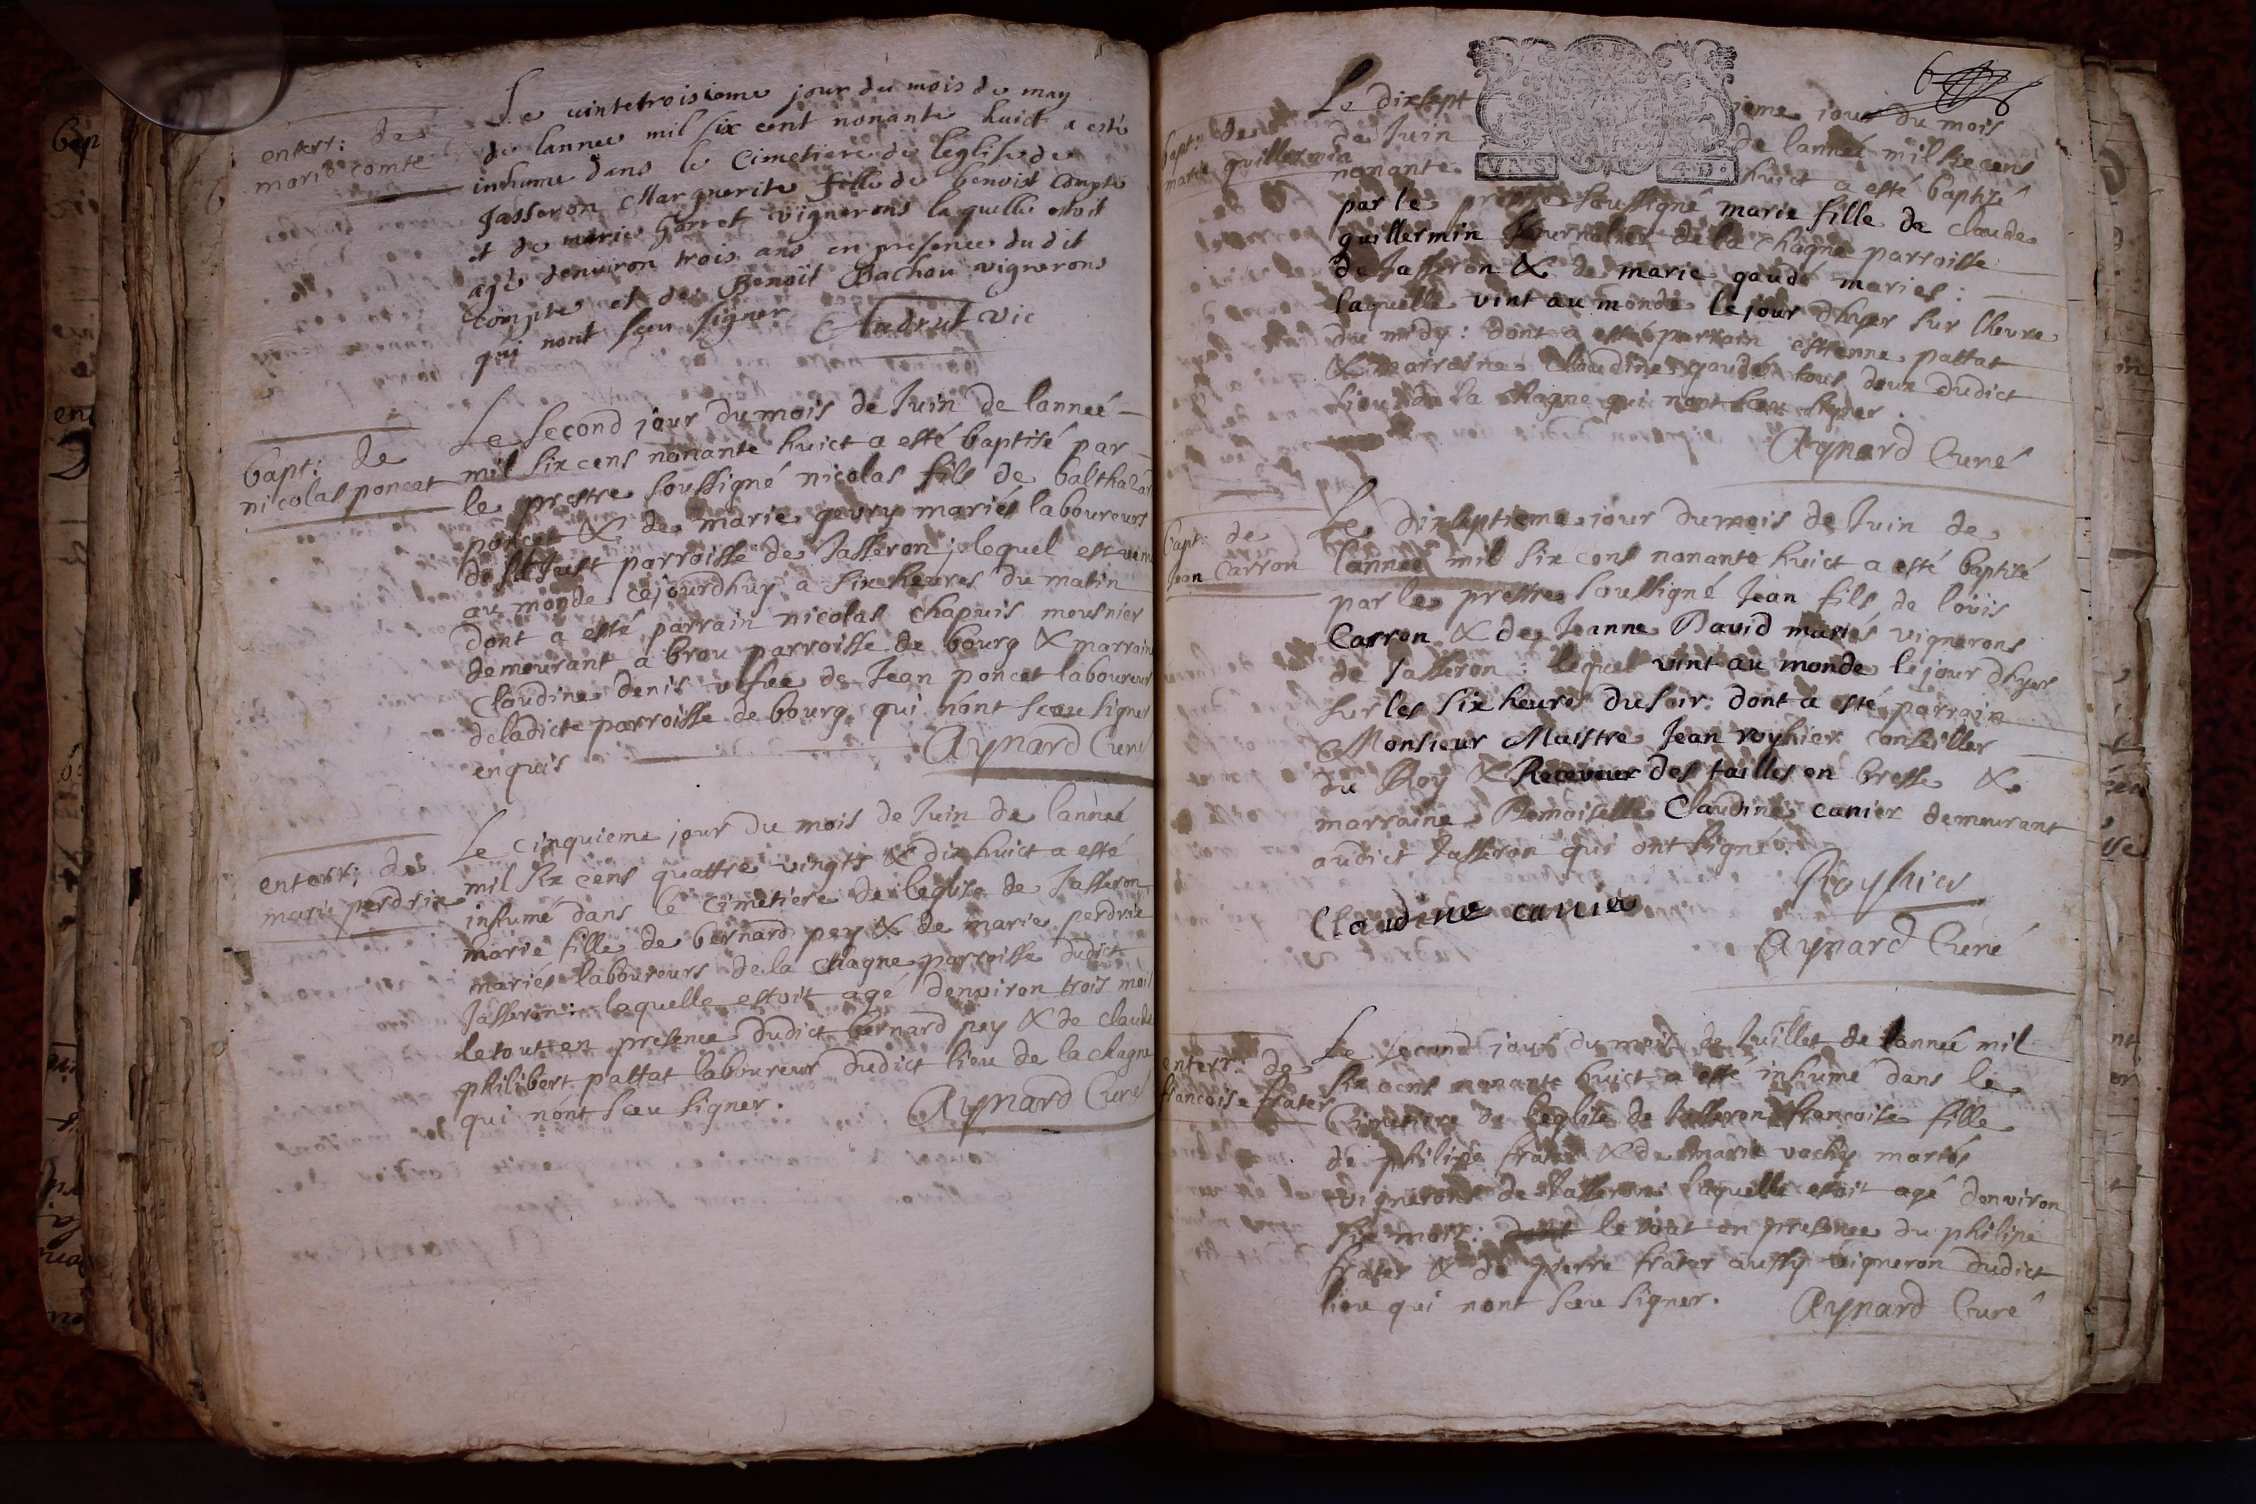 enterr: de
marie comte
Le vintetroisieme jour du mois de may
de lannee mil six cent nonante huict a esté
inhume dans le Cimetiere de leglise de
Jasseron Marguerite fille de benoist Compte
et de marie Garret vignerons laquelle estoit
agé denviron trois ans en presence dudit
Compte et de Benoit Bachou vignerons
qui nont sçeu signer Andrut vic
bapt: de
nicolas poncet
Le second jour du mois de Juin de lanneé
mil six cens nonante huict a esté baptisé par
le prestre soussigné nicolas fils de balthazar
poncet & de marie gevry mariés laboureurs
de St Just parroisse de Jasseron; lequel est venu
au monde cajourdhuy a six heures du matin
dont a esté parrain nicolas chapuis meusnier
demeurant a brou parroisse de bourg & marraine
Claudine denis vefve de Jean poncet laboureur
deladicte parroisse de bourg qui nont sceu signer
enquis Aynard Curé
enterr: de
marie perdrix
Le cinquieme jour du mois de Juin de lanneé
mil six cens quattre vingts & dix huict a esté
inhumé dans le Cimetiere de leglise de Jasseron
marie fille de bernard pey & de marie perdrix
mariés laboureurs de la chagne parroisse dudict
Jasseron: laquelle estoit agé denviron trois mois
le tout en presence dudict bernard pey & de claude
philibert pattat laboureur dudict lieu de la chagne
qui nont sceu signer. Aynard Curé
6
bapt: de
marie guillermin
Le dixsept ieme jour du mois
de Juin de lanneé mil six cens
nonante huict a esté baptisé
par le prestre soussigné marie fille de claude
guillermin Journalier de la chagne parroisse
de Jasseron & de marie gaude mariés:
laquelle vint au monde le jour dhyer sur lheure
du midy: dont a esté parrain estienne pattat
& marraine Claudine gaude tous deux dudict
lieu de la chagne qui nont sceu signer.
Aynard Curé
bapt: de
Jean Carron
Le dixseptieme jour du mois de Juin de
lanneé mil six cens nonante huict a esté baptisé
par le prestre soussigné Jean fils de loüis
Carron & de Jeanne David mariés vignerons
de Jasseron: lequel vint au monde le jour dhyer
sur les six heures du soir: dont a esté parrain
Monsieur Maistre Jean royhier conseiller
du Roy & Receveur des tailles en bresse &
marraine Demoiselle Claudine canier demeurant
audict Jasseron qui ont signé.
Royhier
Claudine canier
Aynard Curé
enterr: de
francoise frater
Le second jour du mois de Juillet de lanneé mil
six cens nonante huict a esté inhumé dans le
Cimetiere de leglise de Jasseron francoise fille
de philippe frater & de marie vachy mariés
vignerons de Jasseron: laquelle estoit agé denviron
six mois: dont le tout en presence du philipe
frater & de pierre frater aussy vigneron dudict
lieu qui nont sceu signer. Aynard Curé